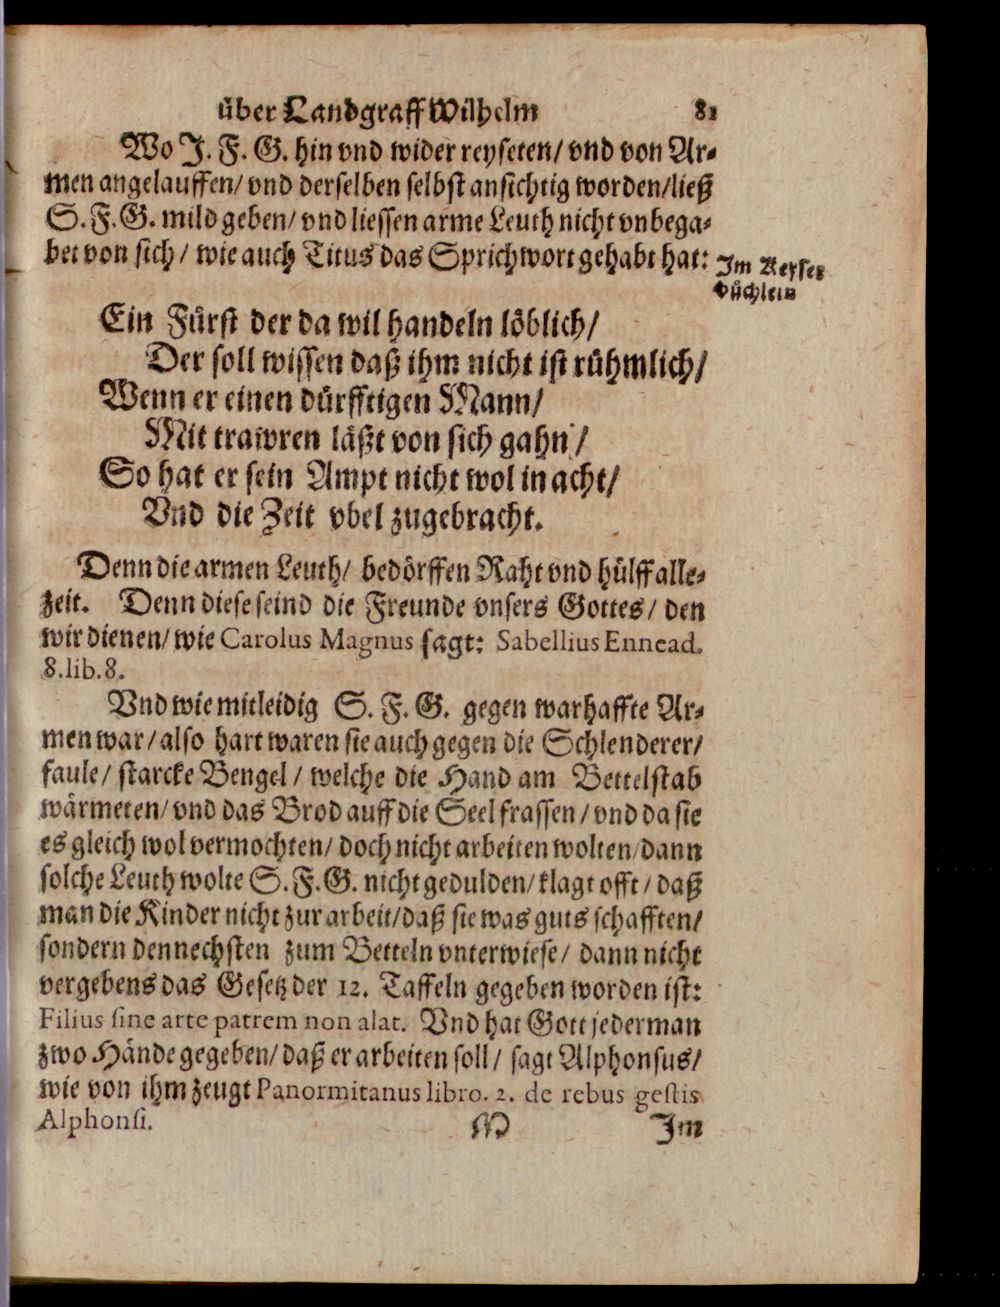 über Landgraff Wilhelm 81
Wo J. F. G. hin vnd wider reyseten/ vnd von Ar-
men angelauffen/ vnd derselben selbst ansichtig worden/ ließ
S. F. G. mild geben/ vnd liessen arme Leuth nicht vnbega-
bet von sich/ wie auch Titus das Sprichwort gehabt hat:
Im Keyser
büchlein
Ein Fürst der da wil handeln löblich/
Der soll wissen daß ihm nicht ist rühmlich/
Wenn er einen dürfftigen Mann/
Mit trawren läßt von sich gahn/
So hat er sein Ampt nicht wol in acht/
Vnd die Zeit vbel zugebracht.
Denn die armen Leuth/ bedörffen Raht vnd hülff alle-
zeit. Denn diese seind die Freunde vnsers Gottes/ den
wir dienen/ wie Carolus Magnus sagt: Sabellius Ennead.
8. lib. 8.
Vnd wie mitleidig S. F. G. gegen warhaffte Ar-
men war/ also hart waren sie auch gegen die Schlenderer/
faule/ starcke Bengel/ welche die Hand am Bettelstab
wärmeten/ vnd das Brod auff die Seel frassen/ vnd da sie
es gleich wol vermochten/ doch nicht arbeiten wolten/ dann
solche Leuth wolte S. F. G. nicht gedulden/ klagt offt/ daß
man die Kinder nicht zur arbeit/ daß sie was guts schafften/
sondern den nechsten zum Betteln vnterwiese/ dann nicht
vergebens das Gesetz der 12. Taffeln gegeben worden ist:
Filius sine arte patrem non alat. Vnd hat Gott jederman
zwo Hände gegeben/ daß er arbeiten soll/ sagt Alphonsus/
wie von ihm zeugt Panormitanus libro. 2. de rebus gestis
Alphonsi.
M Im